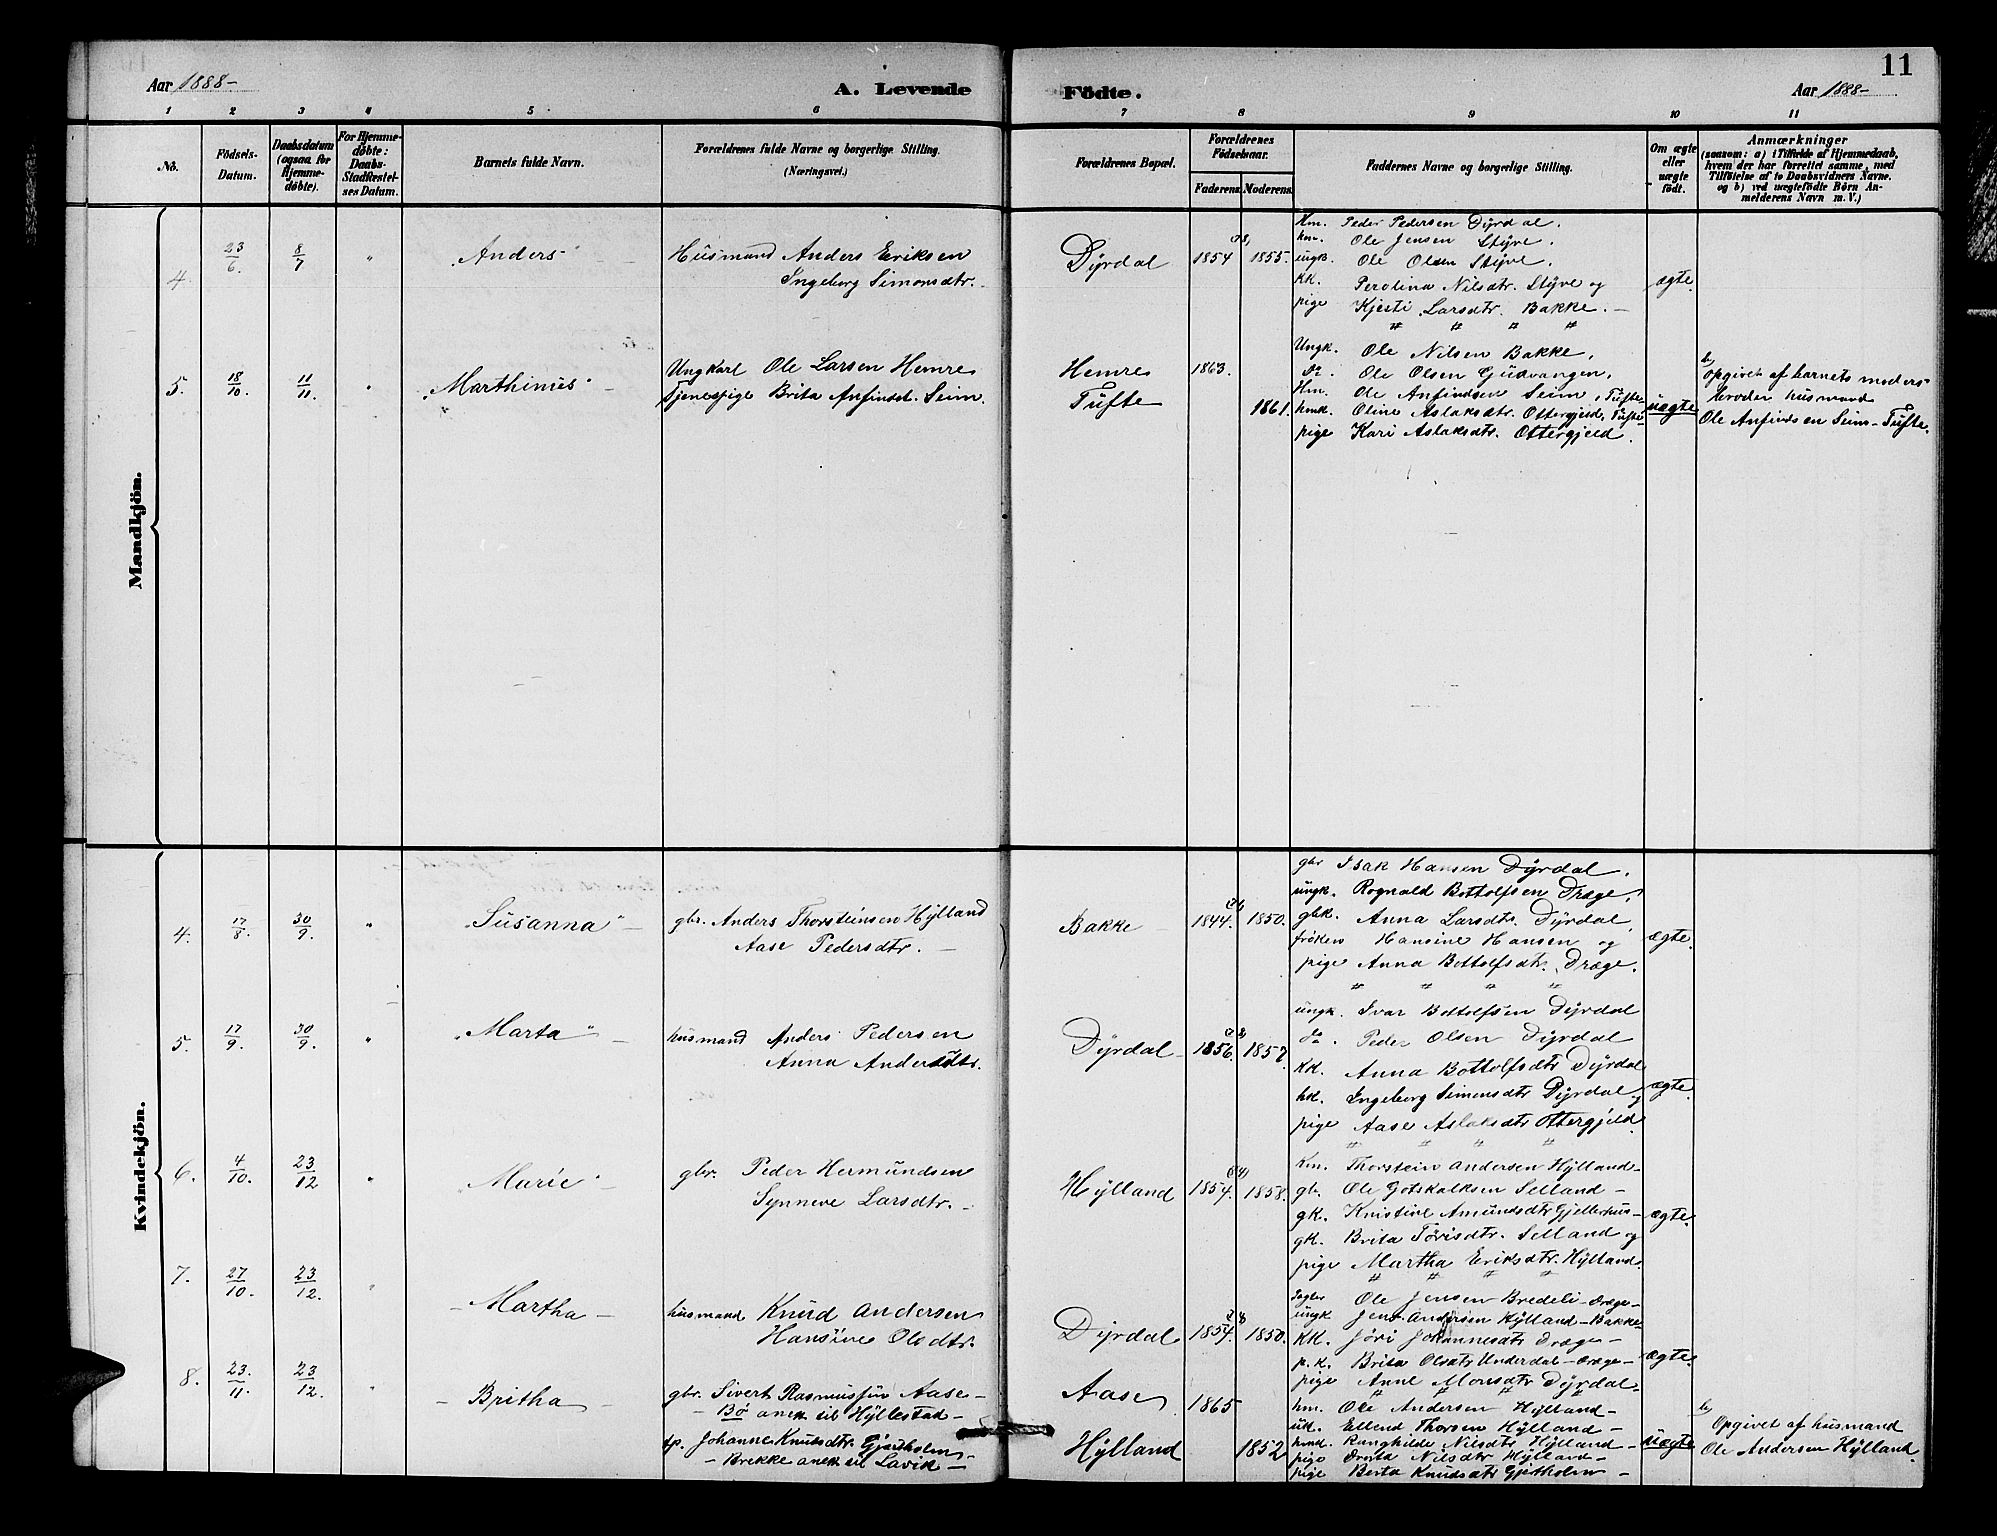 11
Aar 1888-
A. Levende
Födte.
Aar 1888-
1 2 3 4 5 6 7 8 9 10 11
No.
Födsels-
Datum.
Daabsdatum
(ogsaa for
Hjemme-
døbte).
For Hjemme-
døbte:
Daabs-
Stadfæstel-
ses Datum.
Barnets fulde Navn.
Forældrenes fulde Navne og borgerlige Stilling.
(Næringsvei.)
Forældrenes Bopæl.
Forældrenes
Födselsaar.
Faderens. Moderens.
Faddernes Navne og borgerlige Stilling.
Om ægte
eller
uægte
födt.
Anmærkninger
(saasom: a) i Tilfælde af Hjemmedaab,
hvem der har forrettet samme, med
Tilföielse af to Daabsvidners Navne.
og b) ved uægtefödte Börn An-
melderens Navn m. V.)
Mandkjön.
4. 23/6. 8/7 " "Anders" Husmand Anders Eriksen
Ingeborg Simonsdtr. -
Dÿrdal 1854 1855.
Km. Peder Pedersen Dÿrdal.
hm. Ole Jensen Stÿve.
ungk. Ole Olsen Stÿve.
KK. Perolina Nilsdtr. Stÿve og
pige Kjesti Larsdtr. Bakke. -
" " " "
ægte.
5. 18/10. 11/11. " "Marthinus" - Ungkarl Ole Larsen Hemre
Tjenespige Brita Anfinsdt. Seim.
Hemre 1863.
Tufte 1861.
Ungk. Ole Nilsen Bakke,
do. Ole Olsen Gudvangen,
Hm. Ole Anfindsen Seim, Tufte
hmk. Oline Aslaksdtr. Ottergjeld, Tufte
pige Kari Aslaksdtr. Ottergjeld.
uægte
b) Opgivet af barnets moders
broder husmand
Ole Anfindsen Seim - Tufte.
Kvindekjön.
4. 17/8. 30/9. " "Susanna" - gbr. Anders Thorsteinsen Hÿlland
Aase Pedersdtr. -
Bakke 1844. 1850.
gbr Isak Hansen Dÿrdal,
ungk. Rognald Bottolfsen Drage,
gbk. Anna Larsdtr. Dÿrdal,
frøken Hansine Hansen og
pige Anna Bottolfsdtr. Dræge.
" " " "
ægte.
5. 17/9. 30/9. " "Marta" - husmand Anders Pedersen
Anna Andersdtr.
Dÿrdal - 1856 1857.
ungk. Ivar Bottolfsen Dÿrdal
do. Peder Olsen Dÿrdal
KK. Anna Bottolfsdtr Dÿrdal
hk. Ingeborg Simonsdtr Dÿrdal og
pige Aase Aslaksdtr Ottergjeld.
" " " "
ægte.
6. 4/10. 23/12 " "Marie" - gbr. Peder Hermundsen
Synneve Larsdtr. -
Hÿlland 1854. 1858.
Km. Thorstein Andersen Hÿlland-
gb. Ole Gotskalksen Selland -
gk. Kristine Amundsdtr Gjellerhus-
gk. Brita Törisdtr. Selland og
pige Martha Eriksdtr. Hÿlland.
" " " "
ægte.
7. 27/10. 23/12. " - Martha - husmand Knud Andersen
Hansine Olsdtr.
Dÿrdal 1854. 1850.
Ole Jensen Bredeli - Dræge-
ungk Jens Andersen Hÿlland-Bakke-
KK. Jöri Johannesdtr Drege-
p.k. Brita Olsdtr Underdal - Drege-
pige Anne Monsdtr Dÿrdal-
" " " "
ægte.
8. 23./11. 23/12. " - Britha - gbr. Sivert Rasmussön Aase -
- Bø anex til Hÿllestad -
tp. Johanne Knutsdtr. Gjertholm -
- Brekke anex til Lavik -
Aase 1865
Hÿlland 1852.
hm. Ole Andersen Hÿlland-
Ellend Thorsen Hÿlland -
hmk. Runghilde Nilsdtr Hÿlland -
pige Nilsdtr Hÿlland-
pige Berta Knudsdtr Gjertholm -
uægte
b) Opgivet af husmand
Ole Andersen Hÿlland.